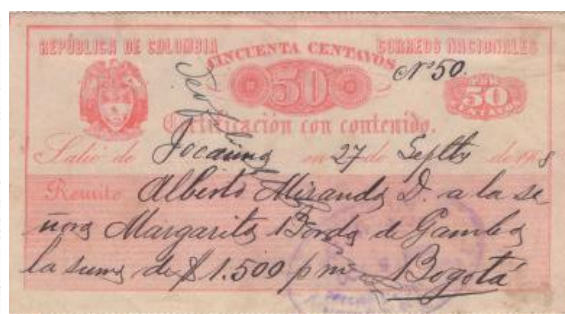 REPÚBLICA DE COLOMBIA CINCUENTA CENTAVOS CORREOS NACIONALES
50 Nº 50. 50
CENTAVOS
Certificación con contenido.
Salió de en 27 de de 190
Remite Alberto Miranda D. a la se-
ñora Margarita Borda de Gamboa
la suma de $1.500 p m Bogotá